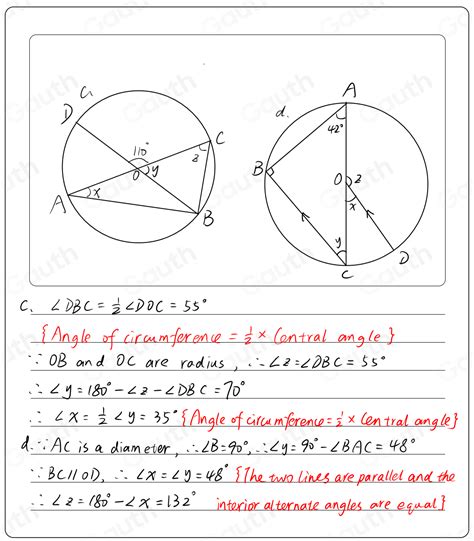 C.
D
110°
C
z
O
y
A
x
B
d.
A
42°
B
O
z
x
y
D
C
C. ∠DBC = 1/2 ∠DOC = 55°
{Angle of circumference = 1/2 × Central angle}
∵ OB and OC are radius, ∴ ∠z = ∠DBC = 55°
∴ ∠y = 180° - ∠z - ∠DBC = 70°
∴ ∠x = 1/2 ∠y = 35° {Angle of circumference = 1/2 × Central angle}
d. ∵ AC is a diameter, ∴ ∠B = 90°, ∴ ∠y = 90° - ∠BAC = 48°
∵ BC // OD, ∴ ∠x = ∠y = 48° {The two lines are parallel and the
∴ ∠z = 180° - ∠x = 132° interior alternate angles are equal}
Gauth